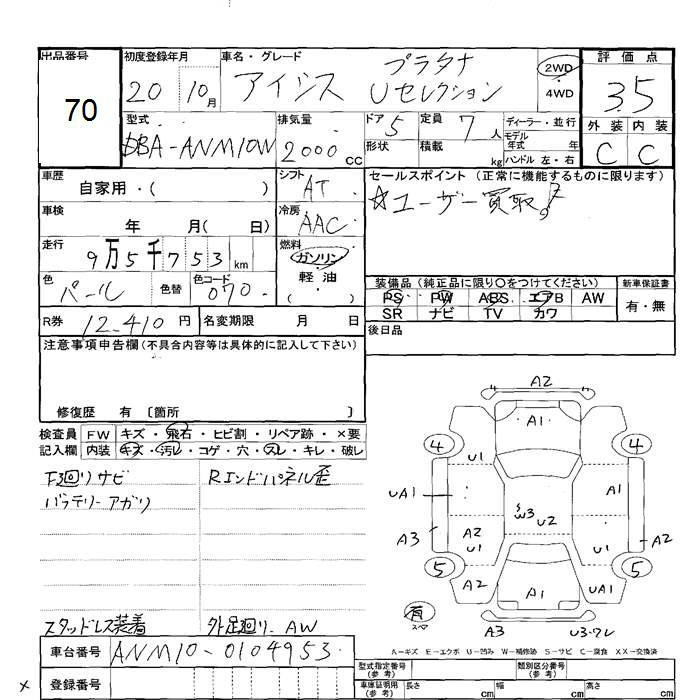 出品番号
70
初度登録年月
20 10月
車名・グレード
アイシス プラタナ
Uセレクション
2WD
4WD
評価点
3.5
外装 内装
C C
型式
DBA-ANM10W
排気量
2000cc
ドア 5
形状
定員 7人
積載 kg
ディーラー・並行
モデル年式 年
ハンドル 左・右
車歴
自家用・( )
シフト
AT
セールスポイント(正常に機能するものに限ります)
☆ユーザー買取。
車検
年 月( 日)
冷房
AAC
走行
9万5千753km
燃料
ガソリン
・
軽油
( )
色
パール
色替
色コード
070
装備品(純正品に限り○をつけてください)
PS PW ABS エアB AW
SR ナビ TV カワ
新車保証書
有・無
R券 12,410円
名変期限 月 日
後日品
注意事項申告欄(不具合内容等は具体的に記入して下さい)
修復歴 有 〔箇所 〕
検査員 FW キズ・飛石・ヒビ割・リペア跡・×要
記入欄 内装 キズ・汚レ・コゲ・穴・スレ・キレ・破レ
F廻リサビ
Rエンドパネル歪
バッテリーアガリ
スタッドレス装着
外足廻リ、AW
A2
A1
4 4
U1
UA1
A1
W3
U2
A3
A2
U1
U1
A2
5 5
A2
A1
UA1
有
スペア
A3
U3・ワレ
A=キズ E=エクボ U=凹み W=補修跡 S=サビ C=腐食 XX=交換済
車台番号 ANM10-0104953
登録番号
×
型式指定番号(参考)
類別区分番号(参考)
車庫証明用(参考) 長さ cm 幅 cm 高さ cm